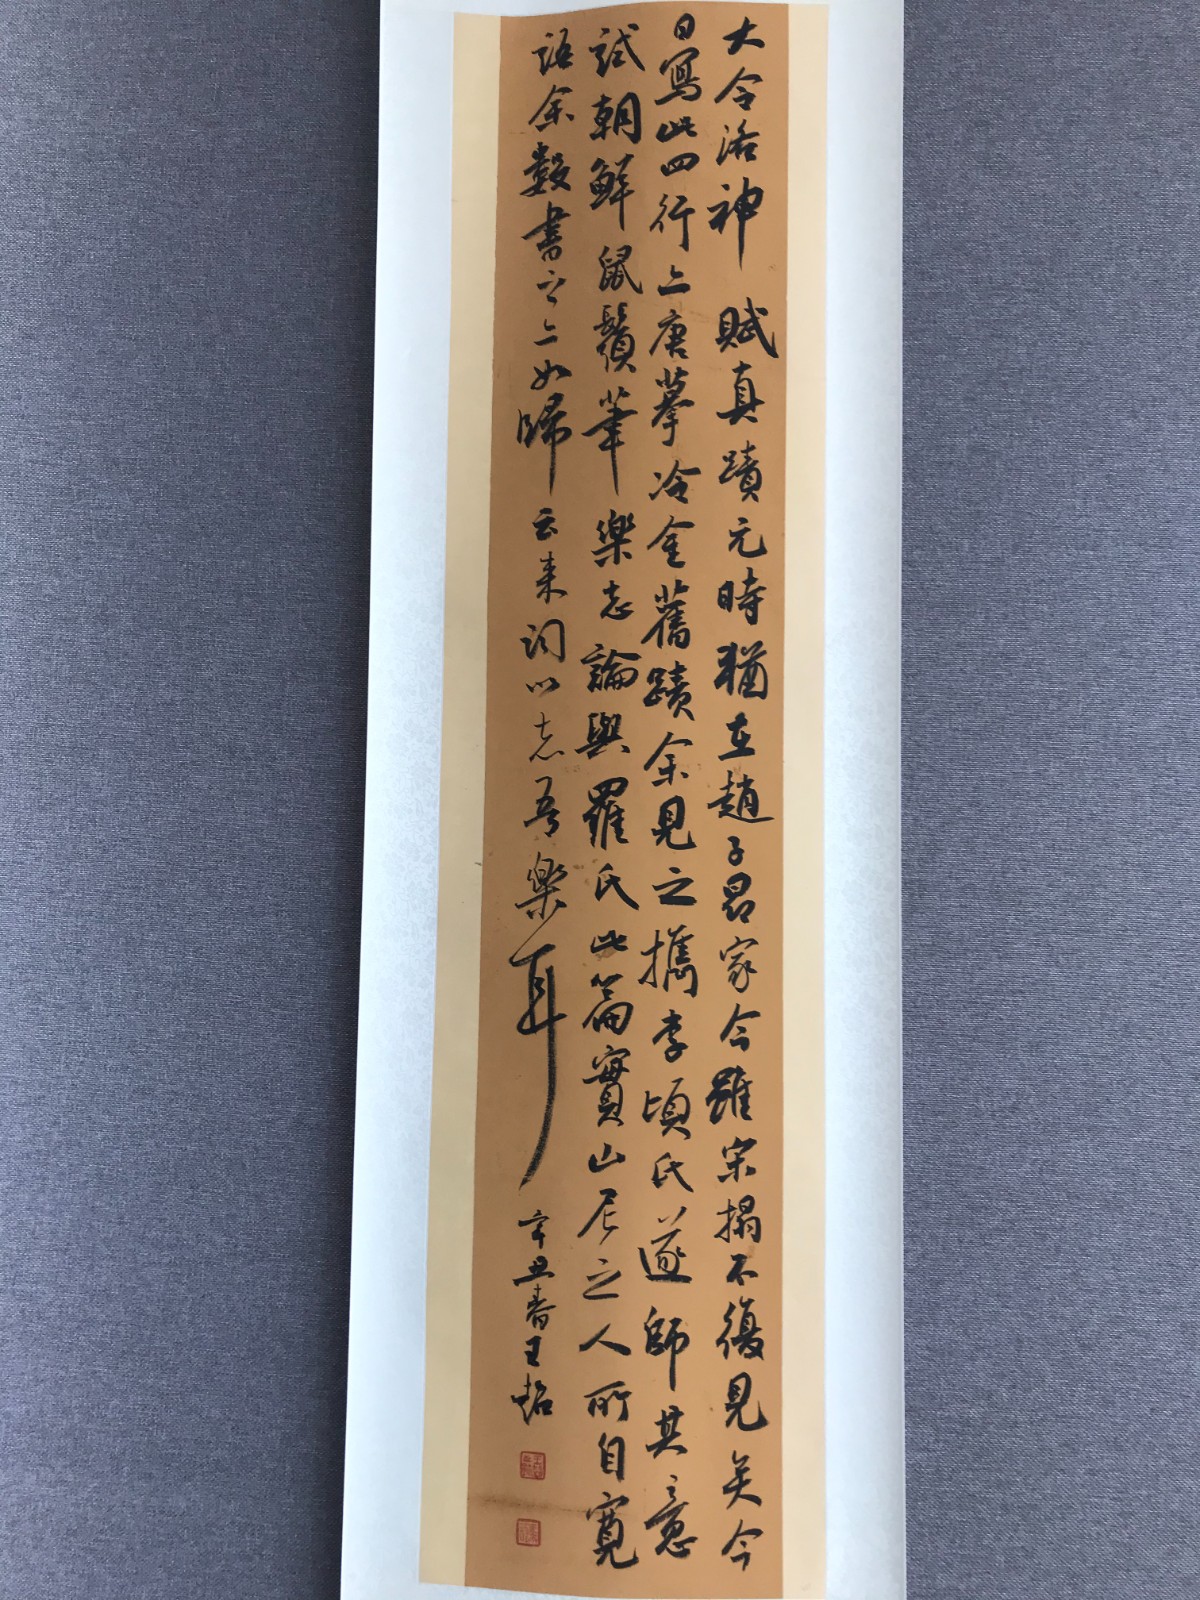 大令洛神賦真蹟元時猶在趙子昂家今雖宋搨不復見矣今
日寫此四行亦唐摹冷金舊蹟余見之携李項氏遂師其意
試朝鮮鼠鬚筆樂志論與羅氏此篇實山居之人所自寬
語余數書之亦如歸去来詞以志吾樂耳
辛丑春王